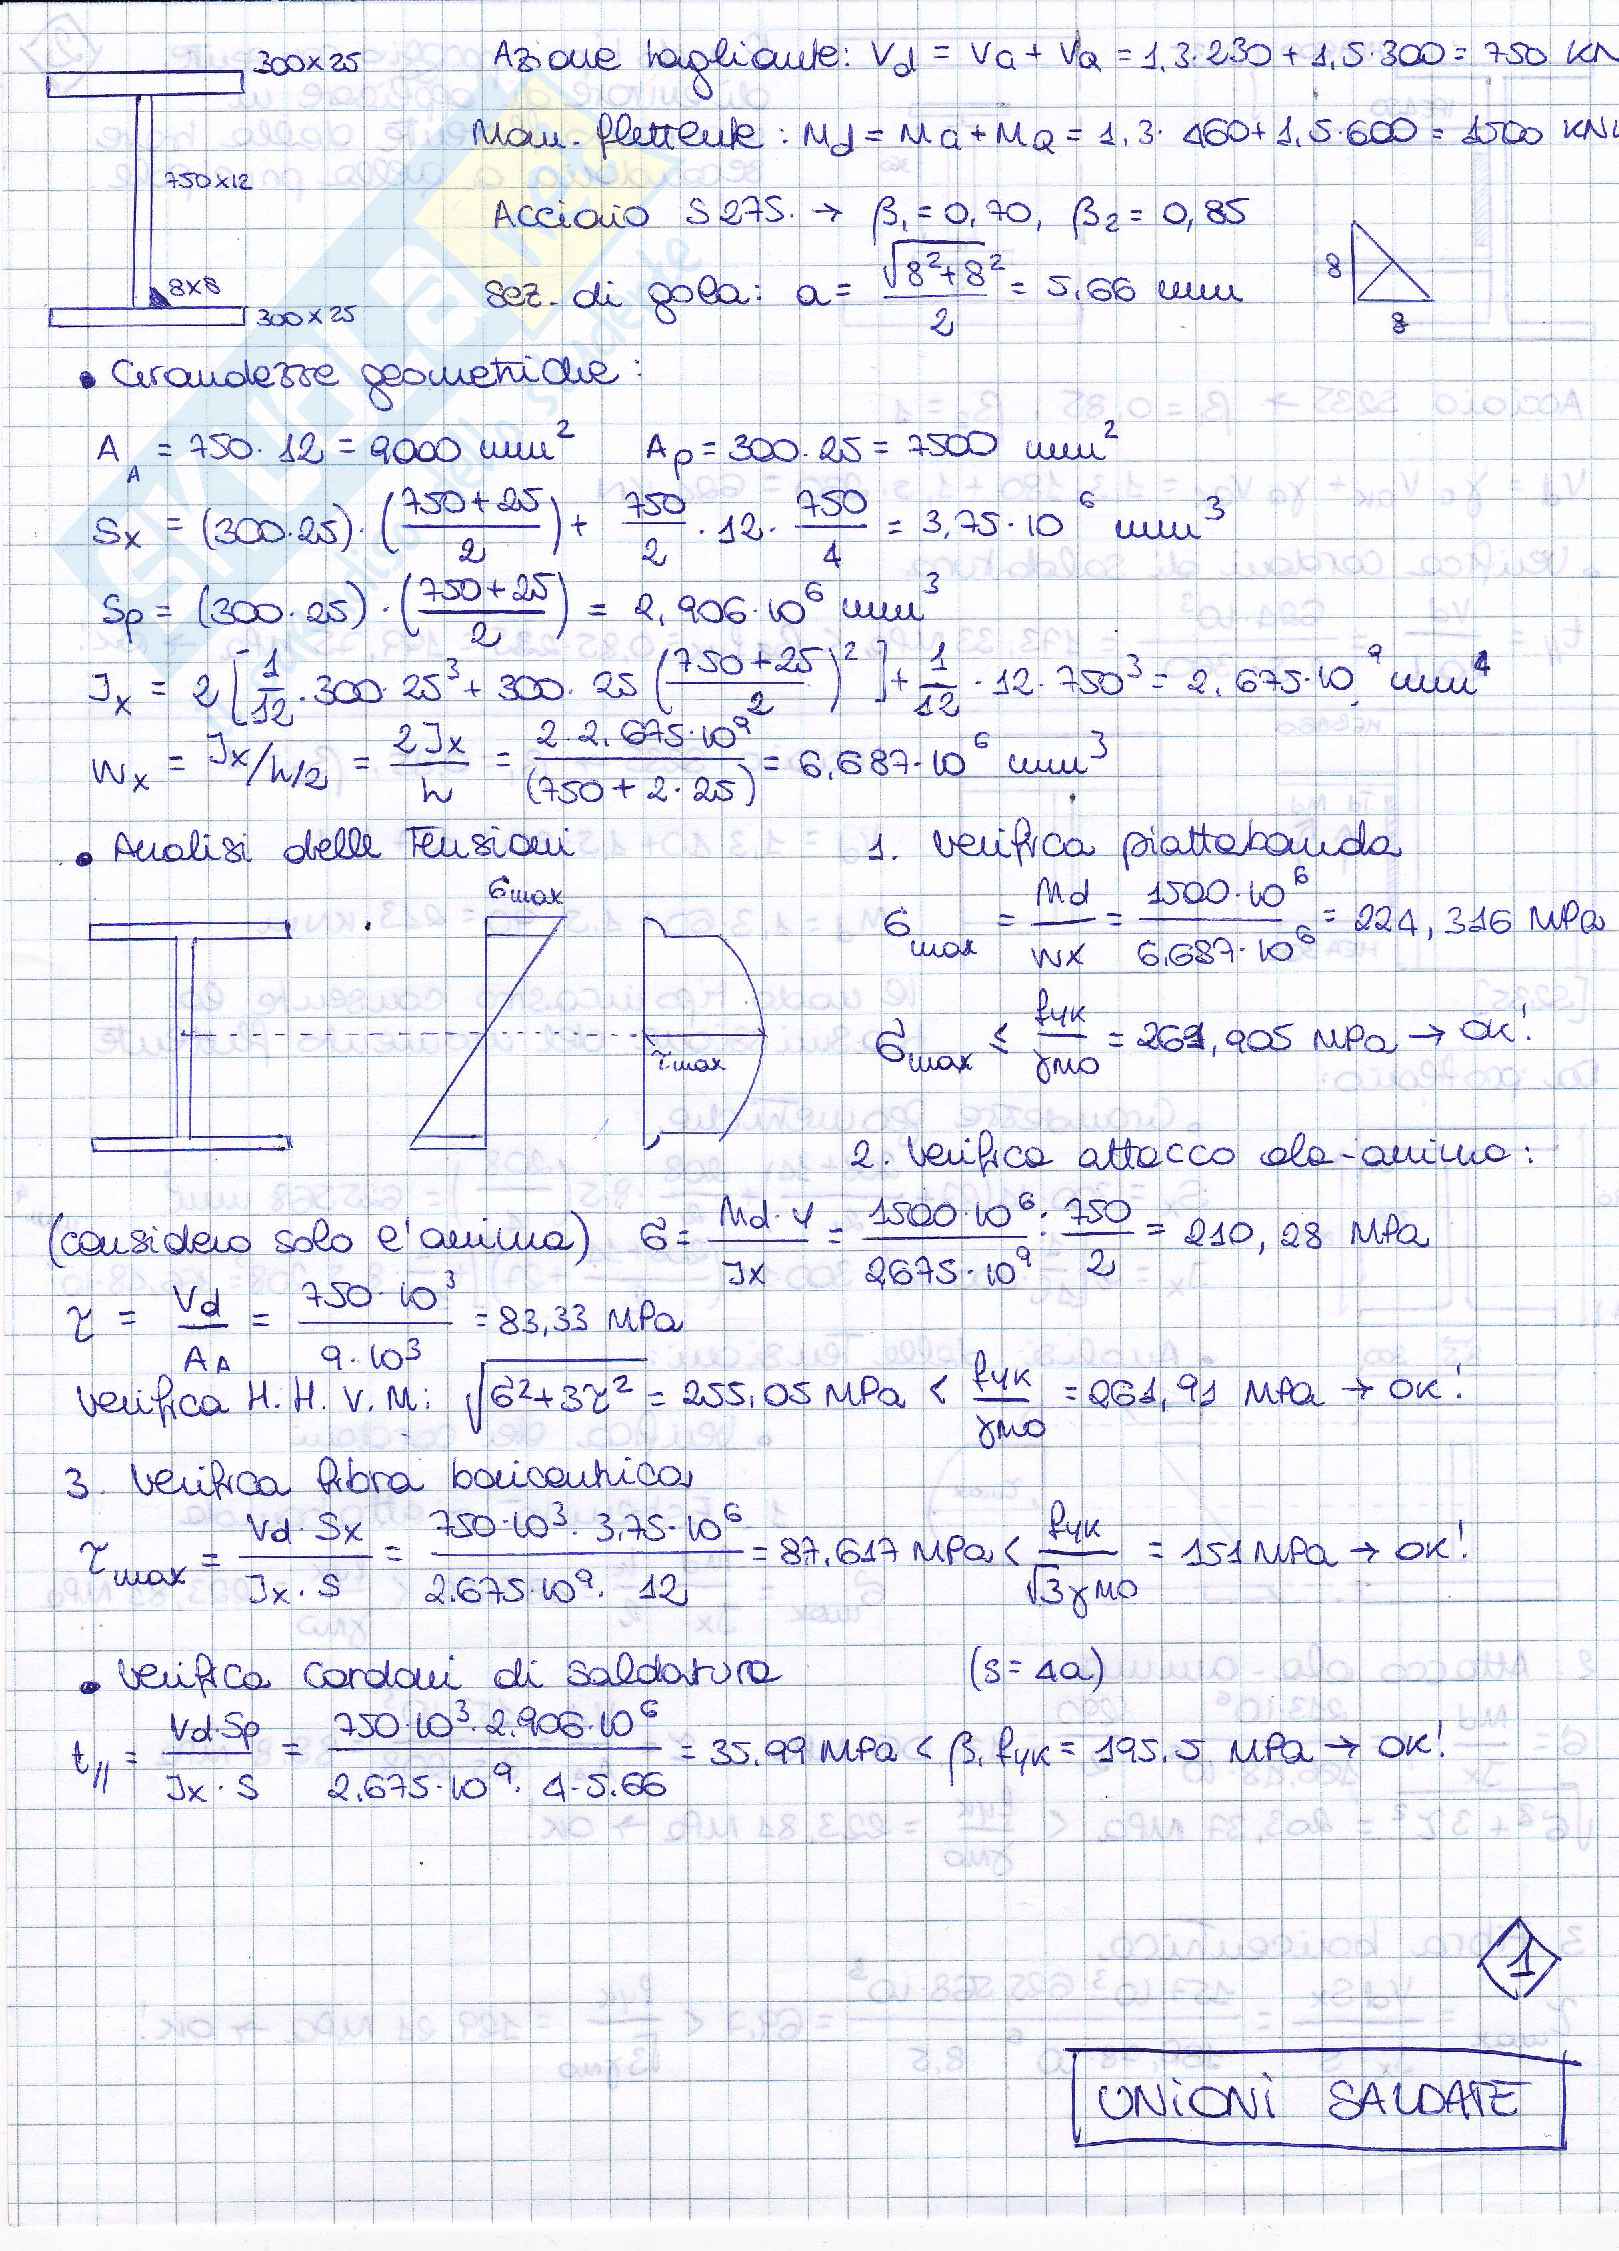 300x25
Azione tagliante: Vd = VG + VQ = 1,3·230 + 1,5·300 = 750 KN
Mom. flettente: Md = MG + MQ = 1,3·460 + 1,5·600 = 1500 KN
750x12
Acciaio S275. → β1 = 0,70, β2 = 0,85
8x8
sez. di gola: a = √(8²+8²)/2 = 5,66 mm
8
8
300x25
• Grandezze geometriche:
AA = 750·12 = 9000 mm² Ap = 300·25 = 7500 mm²
Sx = (300·25)·((750+25)/2) + 750/2 · 12 · 750/4 = 3,75·10⁶ mm³
Sp = (300·25)·((750+25)/2) = 2,906·10⁶ mm³
Jx = 2[1/12·300·25³ + 300·25((750+25)/2)²] + 1/12·12·750³ = 2,675·10⁹ mm⁴
Wx = Jx/h/2 = 2Jx/h = 2·2,675·10⁹/(750+2·25) = 6,687·10⁶ mm³
• Analisi delle Tensioni
σmax
τmax
1. Verifica piattabanda
σmax = Md/Wx = 1500·10⁶/6,687·10⁶ = 224,316 MPa
σmax ≤ fyk/γM0 = 261,905 MPa → OK!
2. Verifica attacco ala-anima:
(considero solo l'anima) σ = Md·y/Jx = 1500·10⁶/2675·10⁹ : 750/2 = 210,28 MPa
τ = Vd/AA = 750·10³/9·10³ = 83,33 MPa
Verifica H.H.V.M: √(σ²+3τ²) = 255,05 MPa < fyk/γM0 = 261,91 MPa → OK!
3. Verifica fibra baricentrica
τmax = Vd·Sx/Jx·s = 750·10³·3,75·10⁶/2.675·10⁹·12 = 87,617 MPa < fyk/√3γM0 = 151 MPa → OK!
• Verifica Cordoni di saldatura (s=4a)
t// = Vd·Sp/Jx·s = 750·10³·2.906·10⁶/2.675·10⁹·4·5.66 = 35.99 MPa < β1 fyk = 195.5 MPa → OK!
1
UNIONI SALDATE